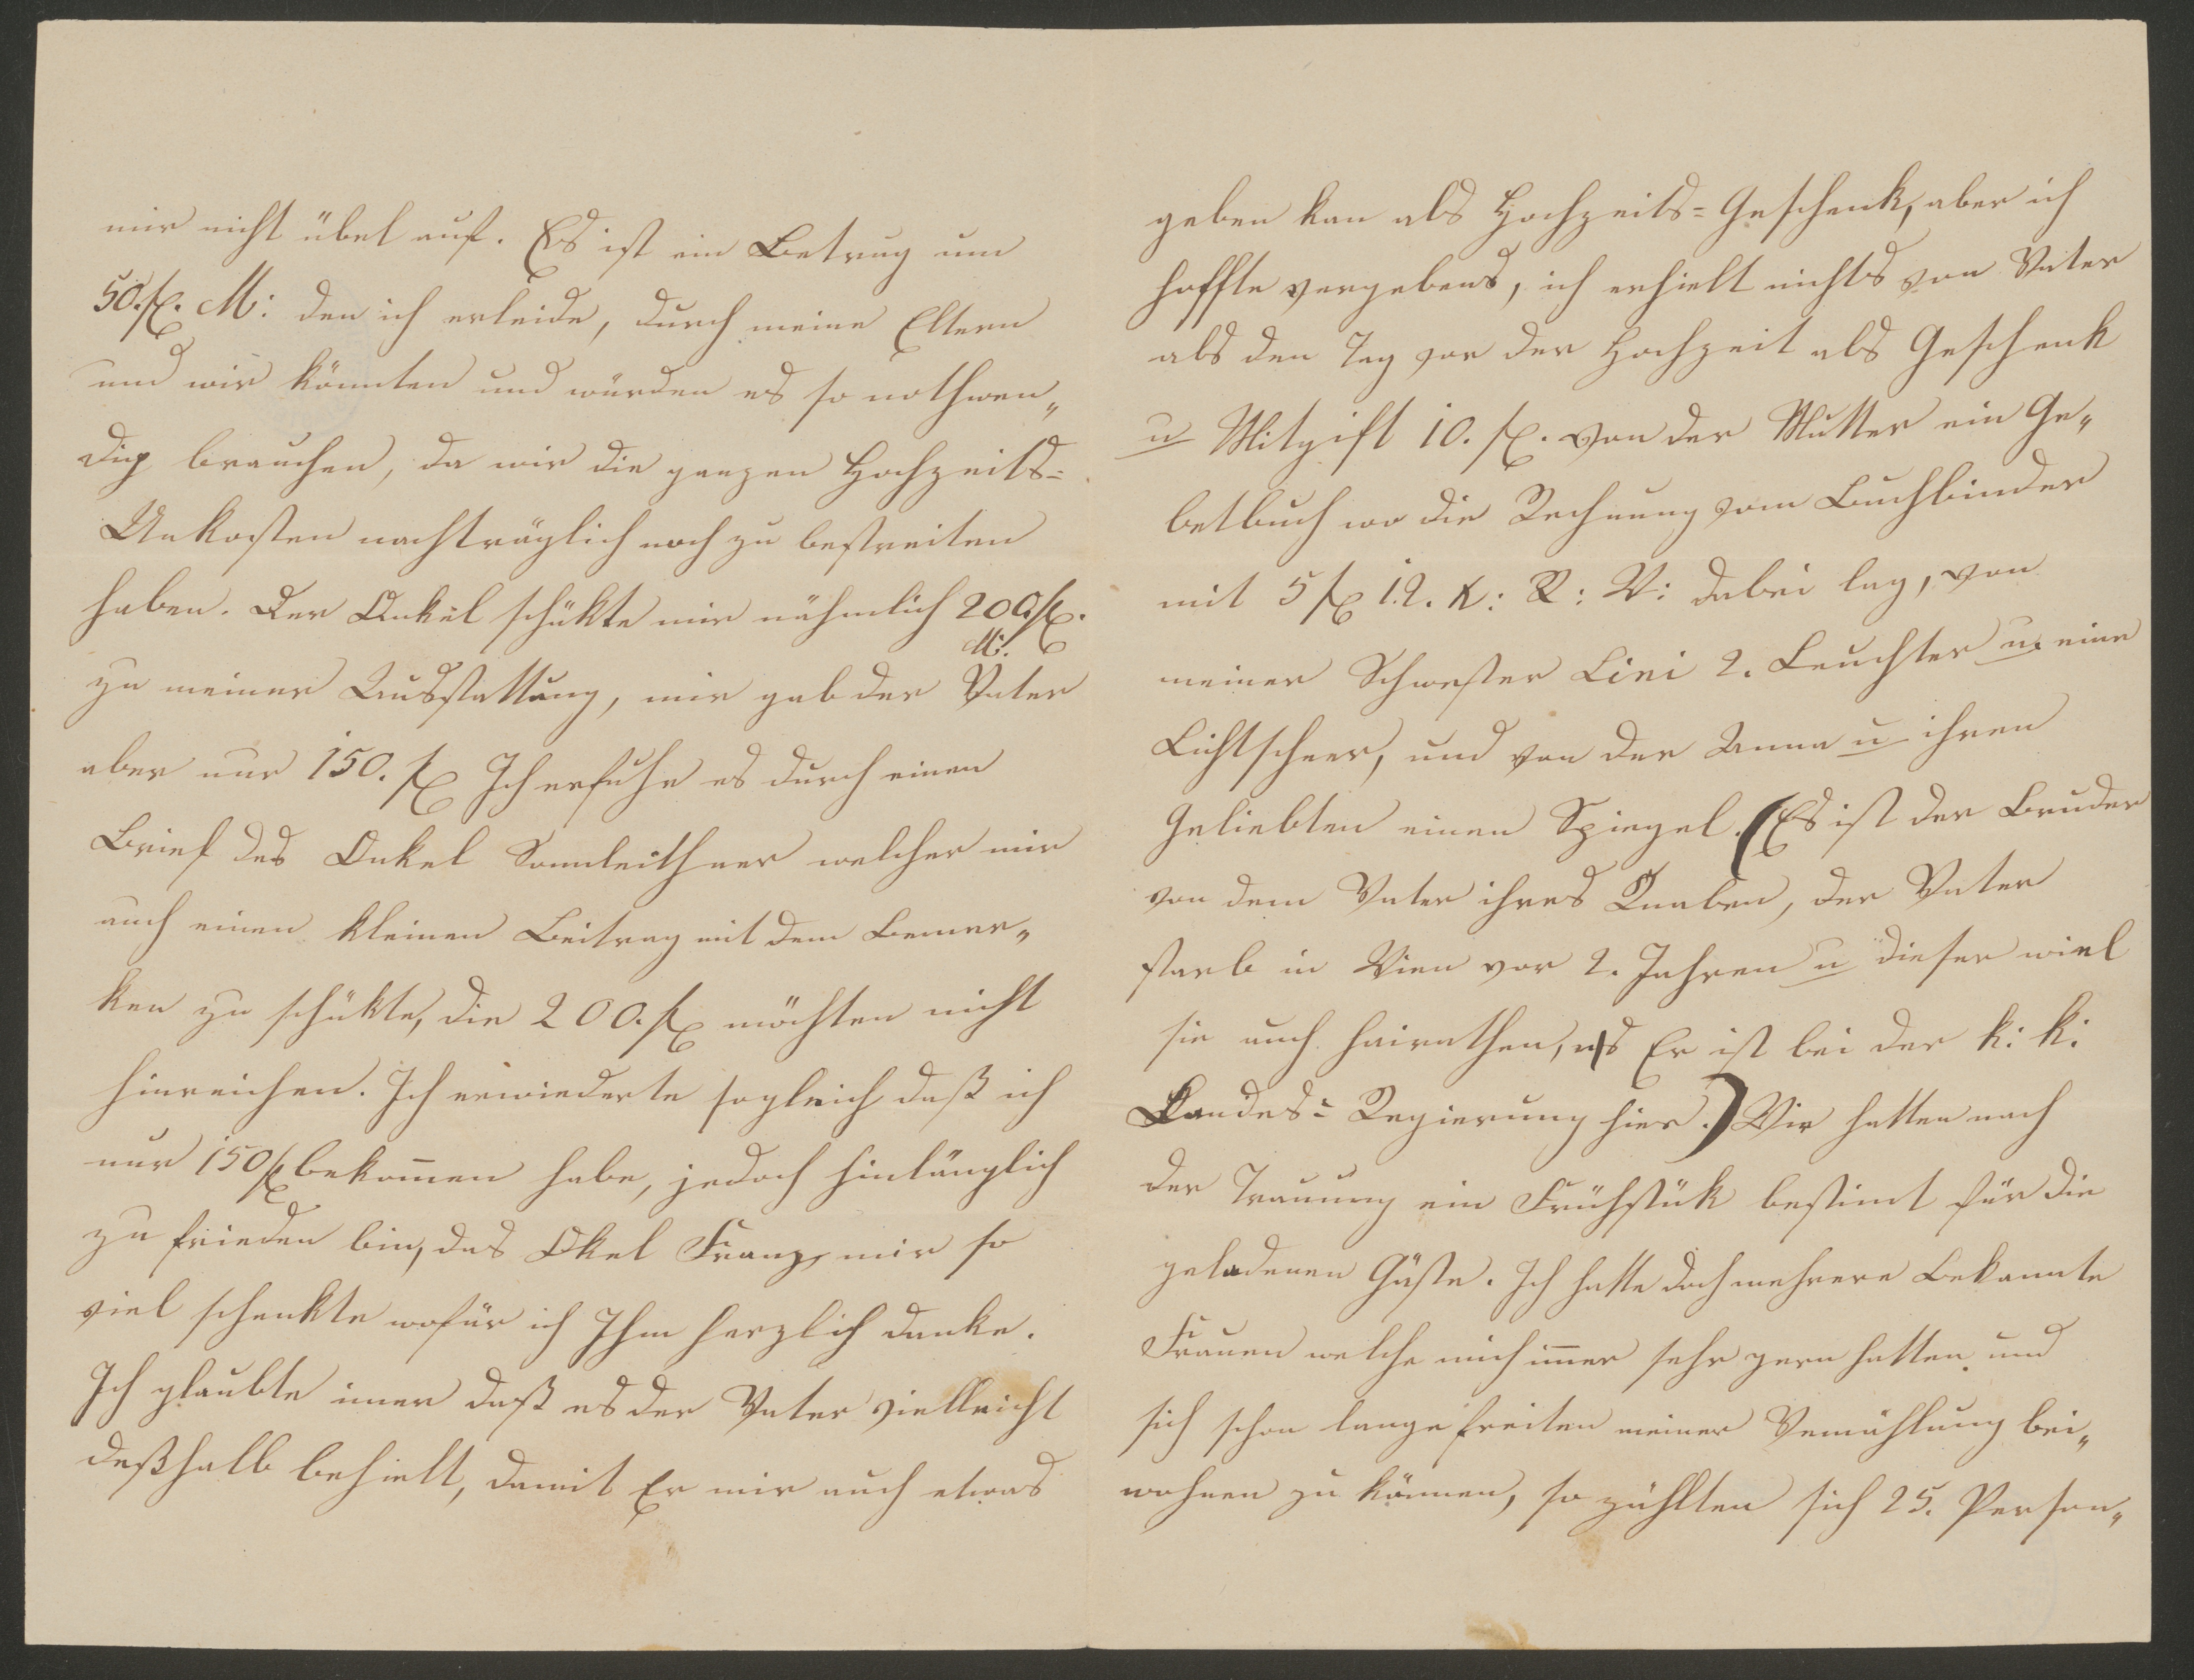 mir nicht übel auf. Es ist ein Betrag um
50. fl. M: den ich erleide, durch meine Eltern
und wir könnten und würden es so nothwen„
dig brauchen, da wir die ganzen Hochzeits=
Unkosten nachträglich noch zu bestreiten
haben. Der Onkel schükte mir nähmlich 200 fl.
M:
zu meiner Ausstattung, mir gab der Vater
aber nur 150. fl Ich erfuhr es durch einen
Brief des Onkel Sonnleithner welcher mir
auch einen kleinen Beitrag mit dem Bemer„
ken zu schükte, die 200. fl möchten nicht
hinreichen. Ich erwiederte sogleich daß ich
nur 150 fl bekom̄en habe, jedoch hinlänglich
zu frieden bin, das Okel Franz mir so
viel schenkte wofür ich Ihm herzlich danke.
Ich glaubte imer daß es der Vater vielleicht
deßhalb behielt, damit Er mir auch etwas
geben kan als Hochzeits=Geschenk, aber ich
hoffte vergebens, ich erhielt nichts von Vater
als den Tag vor der Hochzeit als Geschenk
u Mitgift 10. fl. von der Mutter ein Ge„
betbuch wo die Rechnung vom Buchbinder
mit 5 fl 12. K: R: W: dabei lag, von
meiner Schwester Lini 2. Leuchter u. eine
Lichtscheer, und von der Anna u ihren
Geliebten einen Spiegel. (Es ist der Bruder
von dem Vater ihres Knaben, der Vater
starb in Wien vor 2. Jahren u dieser wiel
sie auch heirathen, Er ist bei der k: k:
Landes=Regierung hier.) Wir hatten nach
der Trauung ein Frühstük bestimt für die
geladenen Gäste. Ich hatte doch mehrere Bekannte
Frauen welche mich im̄er sehr gern hatten und
sich schon lange freiten meiner Vemählung bei„
wohnen zu können, so zählten sich 25. Person„